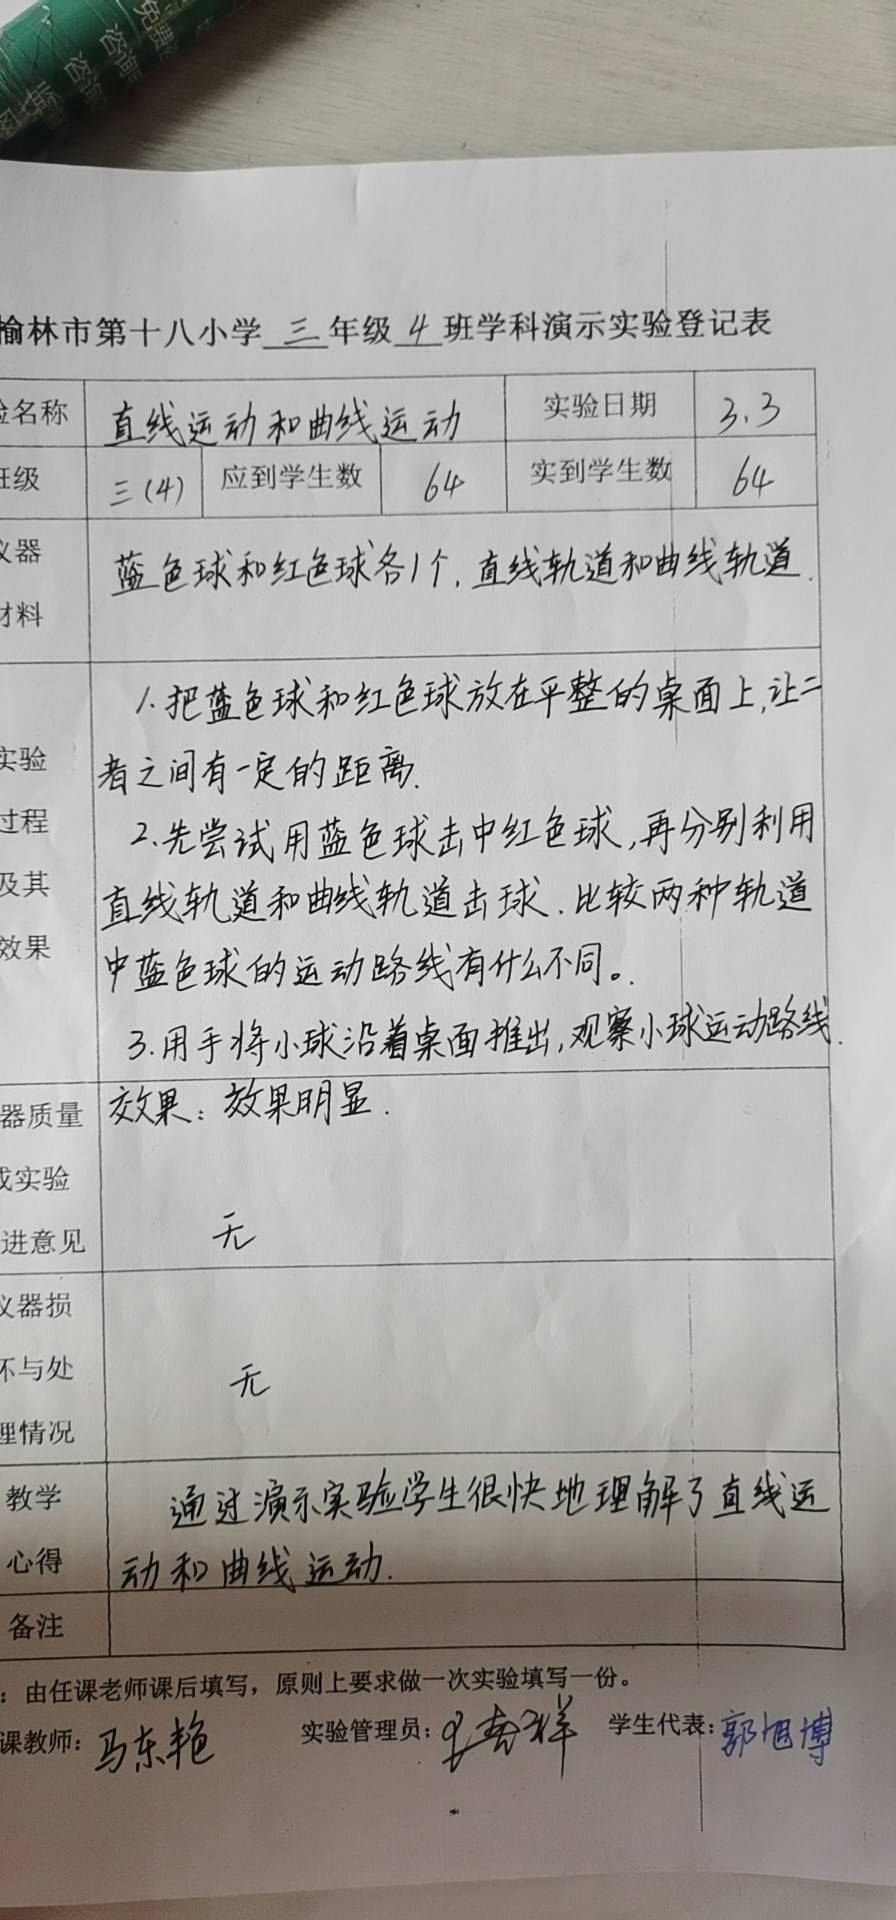 免费
咨询
咨询
榆林市第十八小学 三 年级 4 班学科演示实验登记表
验名称 直线运动和曲线运动 实验日期 3.3
班级 三(4) 应到学生数 64 实到学生数 64
仪器 蓝色球和红色球各1个,直线轨道和曲线轨道.
材料
1.把蓝色球和红色球放在平整的桌面上,让二
实验 者之间有一定的距离.
过程 2.先尝试用蓝色球击中红色球,再分别利用
及其 直线轨道和曲线轨道击球.比较两种轨道
效果 中蓝色球的运动路线有什么不同。
3.用手将小球沿着桌面推出,观察小球运动路线.
器质量 效果:效果明显.
或实验
进意见 无
仪器损
坏与处 无
理情况
教学 通过演示实验学生很快地理解了直线运
心得 动和曲线运动.
备注
:由任课老师课后填写,原则上要求做一次实验填写一份。
课教师:马东艳 实验管理员: 学生代表:郭旭博